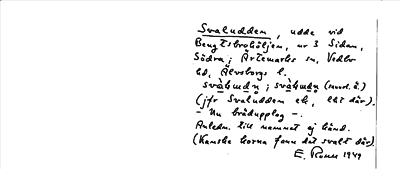 Svaludden, udde vid
Bengtsbrohöljen, nr 3 Sidan,
Södra; Ärtemarks sn, Vedbo
hd, Älvsborgs l.
(jfr Svaludden ek, likt där).
– Nu bråduppdog –.
Anledn. till namnet ej känd.
(Kanske korna fann det svalt där)
E. 1949